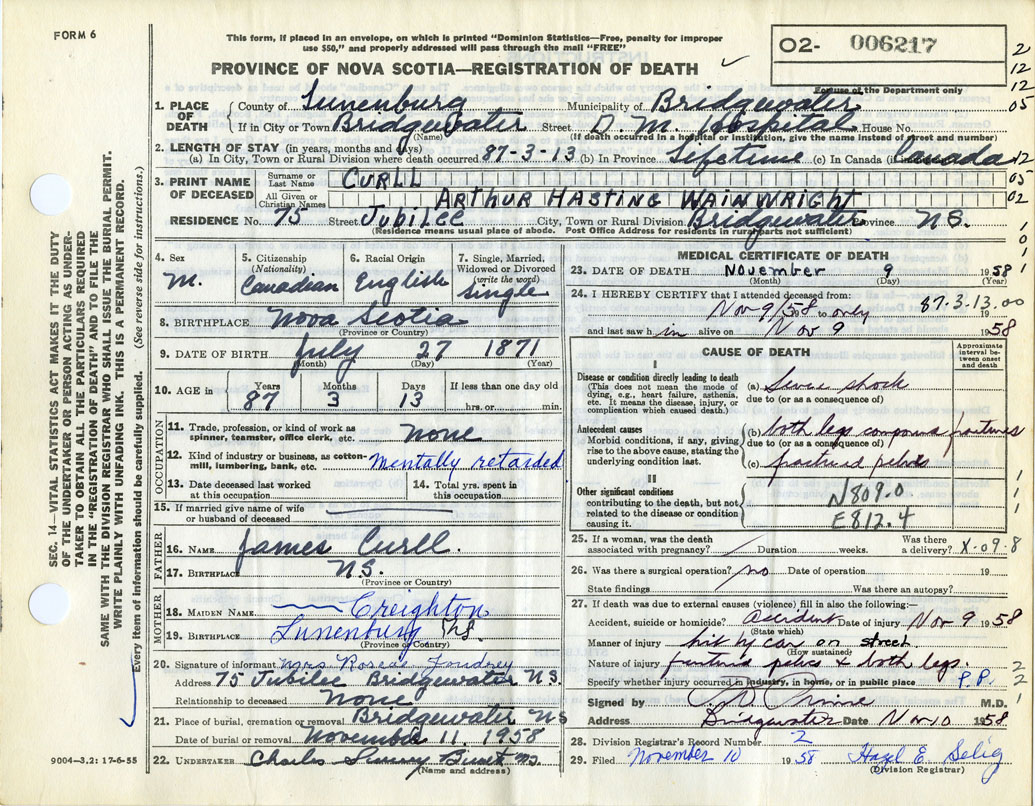 FORM 6
This form, if placed in an envelope, on which is printed "Dominion Statistics—Free, penalty for improper
use $50," and properly addressed will pass through the mail "FREE"
PROVINCE OF NOVA SCOTIA—REGISTRATION OF DEATH
02- 006217
For use of the Department only
1. PLACE OF DEATH { County of Lunenburg Municipality of Bridgewater
If in City or Town Bridgewater Street D. M. Hospital House No.
(Name) (If death occurred in a hospital or institution, give the name instead of street and number)
2. LENGTH OF STAY (in years, months and days)
(a) In City, Town or Rural Division where death occurred 87-3-13 (b) In Province Lifetime (c) In Canada (if Canada
3. PRINT NAME OF DECEASED { Surname or Last Name CURLL
All Given or Christian Names ARTHUR HASTING WAINWRIGHT
RESIDENCE No. 75 Street Jubilee City, Town or Rural Division Bridgewater Province N.S.
(Residence means usual place of abode. Post Office Address for residents in rural parts not sufficient)
4. Sex M.
5. Citizenship (Nationality) Canadian
6. Racial Origin English
7. Single, Married, Widowed or Divorced (write the word) Single
8. BIRTHPLACE Nova Scotia
(Province or Country)
9. DATE OF BIRTH July 27 1871
(Month) (Day) (Year)
10. AGE in Years 87 Months 3 Days 13 If less than one day old
hrs. or min.
OCCUPATION
11. Trade, profession, or kind of work as spinner, teamster, office clerk, etc. none
12. Kind of industry or business, as cotton-mill, lumbering, bank, etc. mentally retarded
13. Date deceased last worked at this occupation
14. Total yrs. spent in this occupation
15. If married give name of wife or husband of deceased
FATHER
16. NAME James Curll.
17. BIRTHPLACE N.S.
(Province or Country)
MOTHER
18. MAIDEN NAME Creighton
19. BIRTHPLACE Lunenburg N.S.
(Province or Country)
20. Signature of informant Mrs
Address 75 Jubilee Bridgewater N.S.
Relationship to deceased None
21. Place of burial, cremation or removal Bridgewater NS
Date of burial or removal November 11, 1958
22. UNDERTAKER Charles
(Name and address)
MEDICAL CERTIFICATE OF DEATH
23. DATE OF DEATH November 9 1958
(Month) (Day) (Year)
24. I HEREBY CERTIFY that I attended deceased from
Nov 9/58 to only 87.3.13.00
and last saw h im alive on Nov 9 1958
CAUSE OF DEATH
Approximate interval between onset and death
I
Disease or condition directly leading to death
(This does not mean the mode of dying, e.g., heart failure, asthenia, etc. It means the disease, injury, or complication which caused death.)
(a) Severe shock
due to (or as a consequence of)
Antecedent causes
Morbid conditions, if any, giving rise to the above cause, stating the underlying condition last.
(b) both legs compound fractures
due to (or as a consequence of)
(c) fractured pelvis
II
Other significant conditions
contributing to the death, but not related to the disease or condition causing it.
N809.0
E812.4
25. If a woman, was the death associated with pregnancy? Duration weeks. Was there a delivery? X-09-8
26. Was there a surgical operation? no Date of operation 19
State findings Was there an autopsy?
27. If death was due to external causes (violence) fill in also the following:—
Accident, suicide or homicide? accident Date of injury Nov 9 1958
(State which)
Manner of injury hit by car on street
(How sustained)
Nature of injury fractured pelvis & both legs.
Specify whether injury occurred in industry, in home, or in public place P.P.
Signed by M.D.
Address Bridgewater Date Nov 10 1958
28. Division Registrar's Record Number 2
29. Filed November 10 1958 Hazel E. Selig
(Division Registrar)
SEC. 14—VITAL STATISTICS ACT MAKES IT THE DUTY
OF THE UNDERTAKER OR PERSON ACTING AS UNDER-
TAKER TO OBTAIN ALL THE PARTICULARS REQUIRED
IN THE "REGISTRATION OF DEATH" AND TO FILE THE
SAME WITH THE DIVISION REGISTRAR WHO SHALL ISSUE THE BURIAL PERMIT.
WRITE PLAINLY WITH UNFADING INK. THIS IS A PERMANENT RECORD.
Every item of information should be carefully supplied. (See reverse side for instructions.)
9004—3.2: 17-6-55
2
12
12
05
12
05
02
1
0
1
1
1
1
1
2
2
1